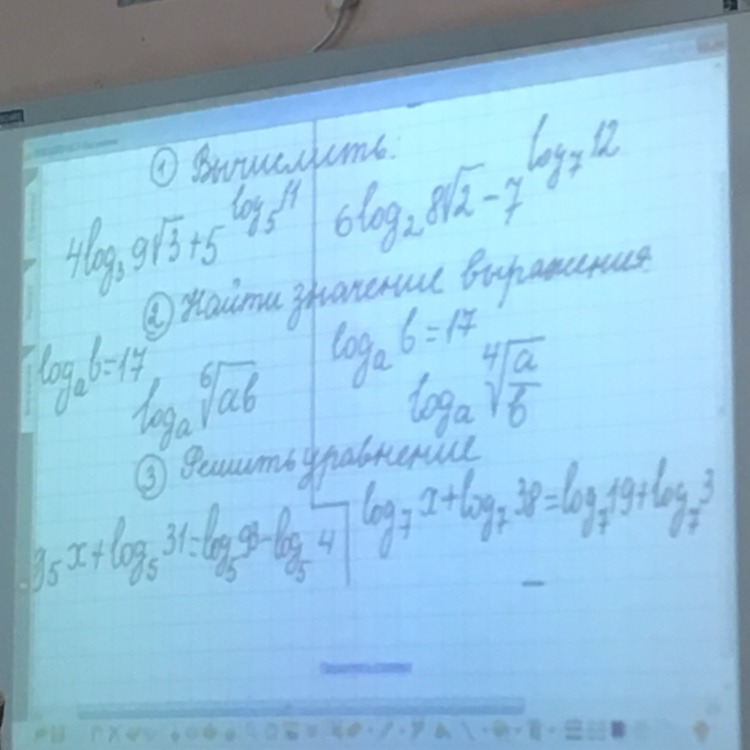 ① Вычислить:
4log₃ 9√3 + 5^(log₅ 11)
6log₂ 8√2 - 7^(log₇ 12)
② Найти значение выражения
logₐ b = 17
logₐ ⁶√(ab)
logₐ b = 17
logₐ ⁴√(a/b)
③ Решить уравнение
g₅ x + log₅ 31 = log₅ 93 - log₅ 4
log₇ x + log₇ 38 = log₇ 19 + log₇ 3